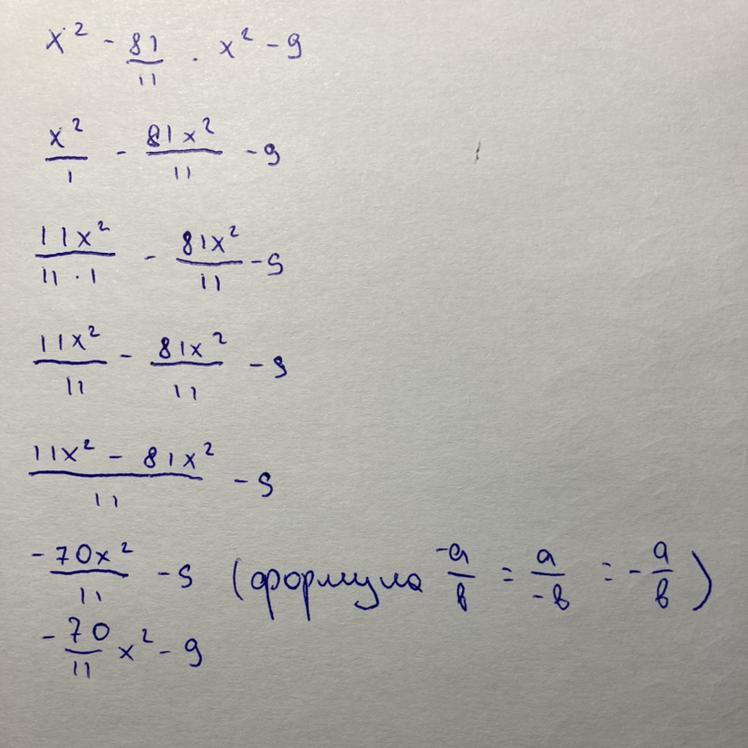 x² - 81/11 · x² - 9
x²/1 - 81x²/11 - 9
11x²/11·1 - 81x²/11 - 9
11x²/11 - 81x²/11 - 9
11x² - 81x²/11 - 9
-70x²/11 - 9 (формула -a/b = a/-b = -a/b)
-70/11 x² - 9